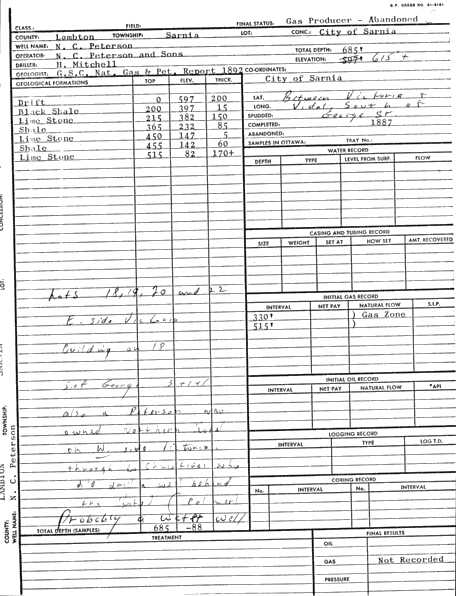 B.P. ORDER NO.
CLASS: FIELD: FINAL STATUS: Gas Producer - Abandoned
COUNTY: Lambton TOWNSHIP: Sarnia LOT: CONC: City of Sarnia
WELL NAME: N. C. Peterson
OPERATOR: N. C. Peterson and Sons TOTAL DEPTH: 685'
DRILLER: H. Mitchell ELEVATION: 597' 615 +
GEOLOGIST: G.S.C. Nat. Gas & Pet. Report 1892 CO-ORDINATES:
GEOLOGICAL FORMATIONS TOP ELEV. THICK.
City of Sarnia
Drift 0 597 200
Black Shale 200 397 15
Lime Stone 215 382 150
Shale 365 232 85
Lime Stone 450 147 5
Shale 455 142 60
Lime Stone 515 82 170+
LAT. Between Victoria &
LONG. Vidal, South of
SPUDDED: George St.
COMPLETED: 1887
ABANDONED:
SAMPLES IN OTTAWA: TRAY No.:
WATER RECORD
DEPTH TYPE LEVEL FROM SURF. FLOW
CASING AND TUBING RECORD
SIZE WEIGHT SET AT HOW SET AMT. RECOVERED
INITIAL GAS RECORD
INTERVAL NET PAY NATURAL FLOW S.I.P.
330' ) Gas Zone
515' )
INITIAL OIL RECORD
INTERVAL NET PAY NATURAL FLOW °API
LOGGING RECORD
INTERVAL TYPE LOG T.D.
CORING RECORD
No. INTERVAL No. INTERVAL
Lots 18, 19, 20 and 22
E. side Victoria
building on 18
S. of George
also a Peterson who
owned Northern
on W. side Victoria
through to Christina who
did drill a well behind
the hotel
Probably a Water Well
TOTAL DEPTH (SAMPLES) 685 -88
TREATMENT
FINAL RESULTS
OIL
GAS Not Recorded
PRESSURE
CONCESSION:
LOT:
TOWNSHIP:
COUNTY: LAMBTON
WELL NAME: N. C. Peterson